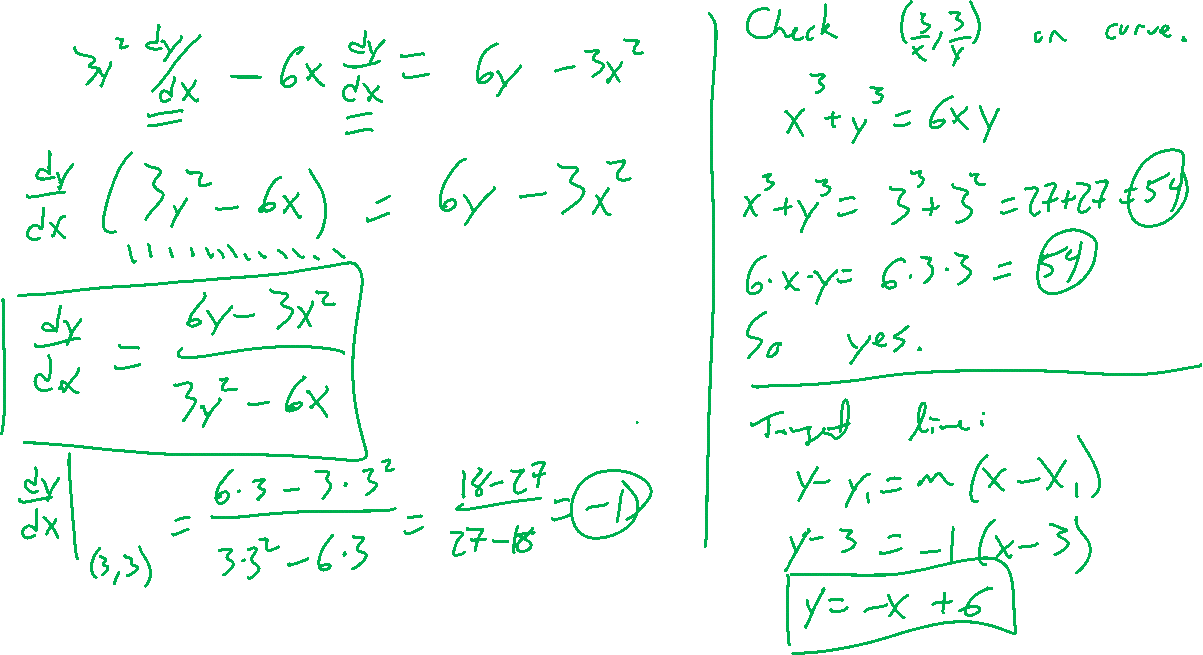 3y² dy/dx - 6x dy/dx = 6y - 3x²
dy/dx (3y² - 6x) = 6y - 3x²
dy/dx = (6y - 3x²)/(3y² - 6x)
dy/dx |(3,3) = (6·3 - 3·3²)/(3·3² - 6·3) = (18-27)/(27-18) = -1
Check (3/x, 3/y) on curve.
x³ + y³ = 6xy
x³ + y³ = 3³ + 3² = 27+27 = 54
6·x·y = 6·3·3 = 54
So yes.
Tangent line:
y - y₁ = m (x - x₁)
y - 3 = -1 (x - 3)
y = -x + 6